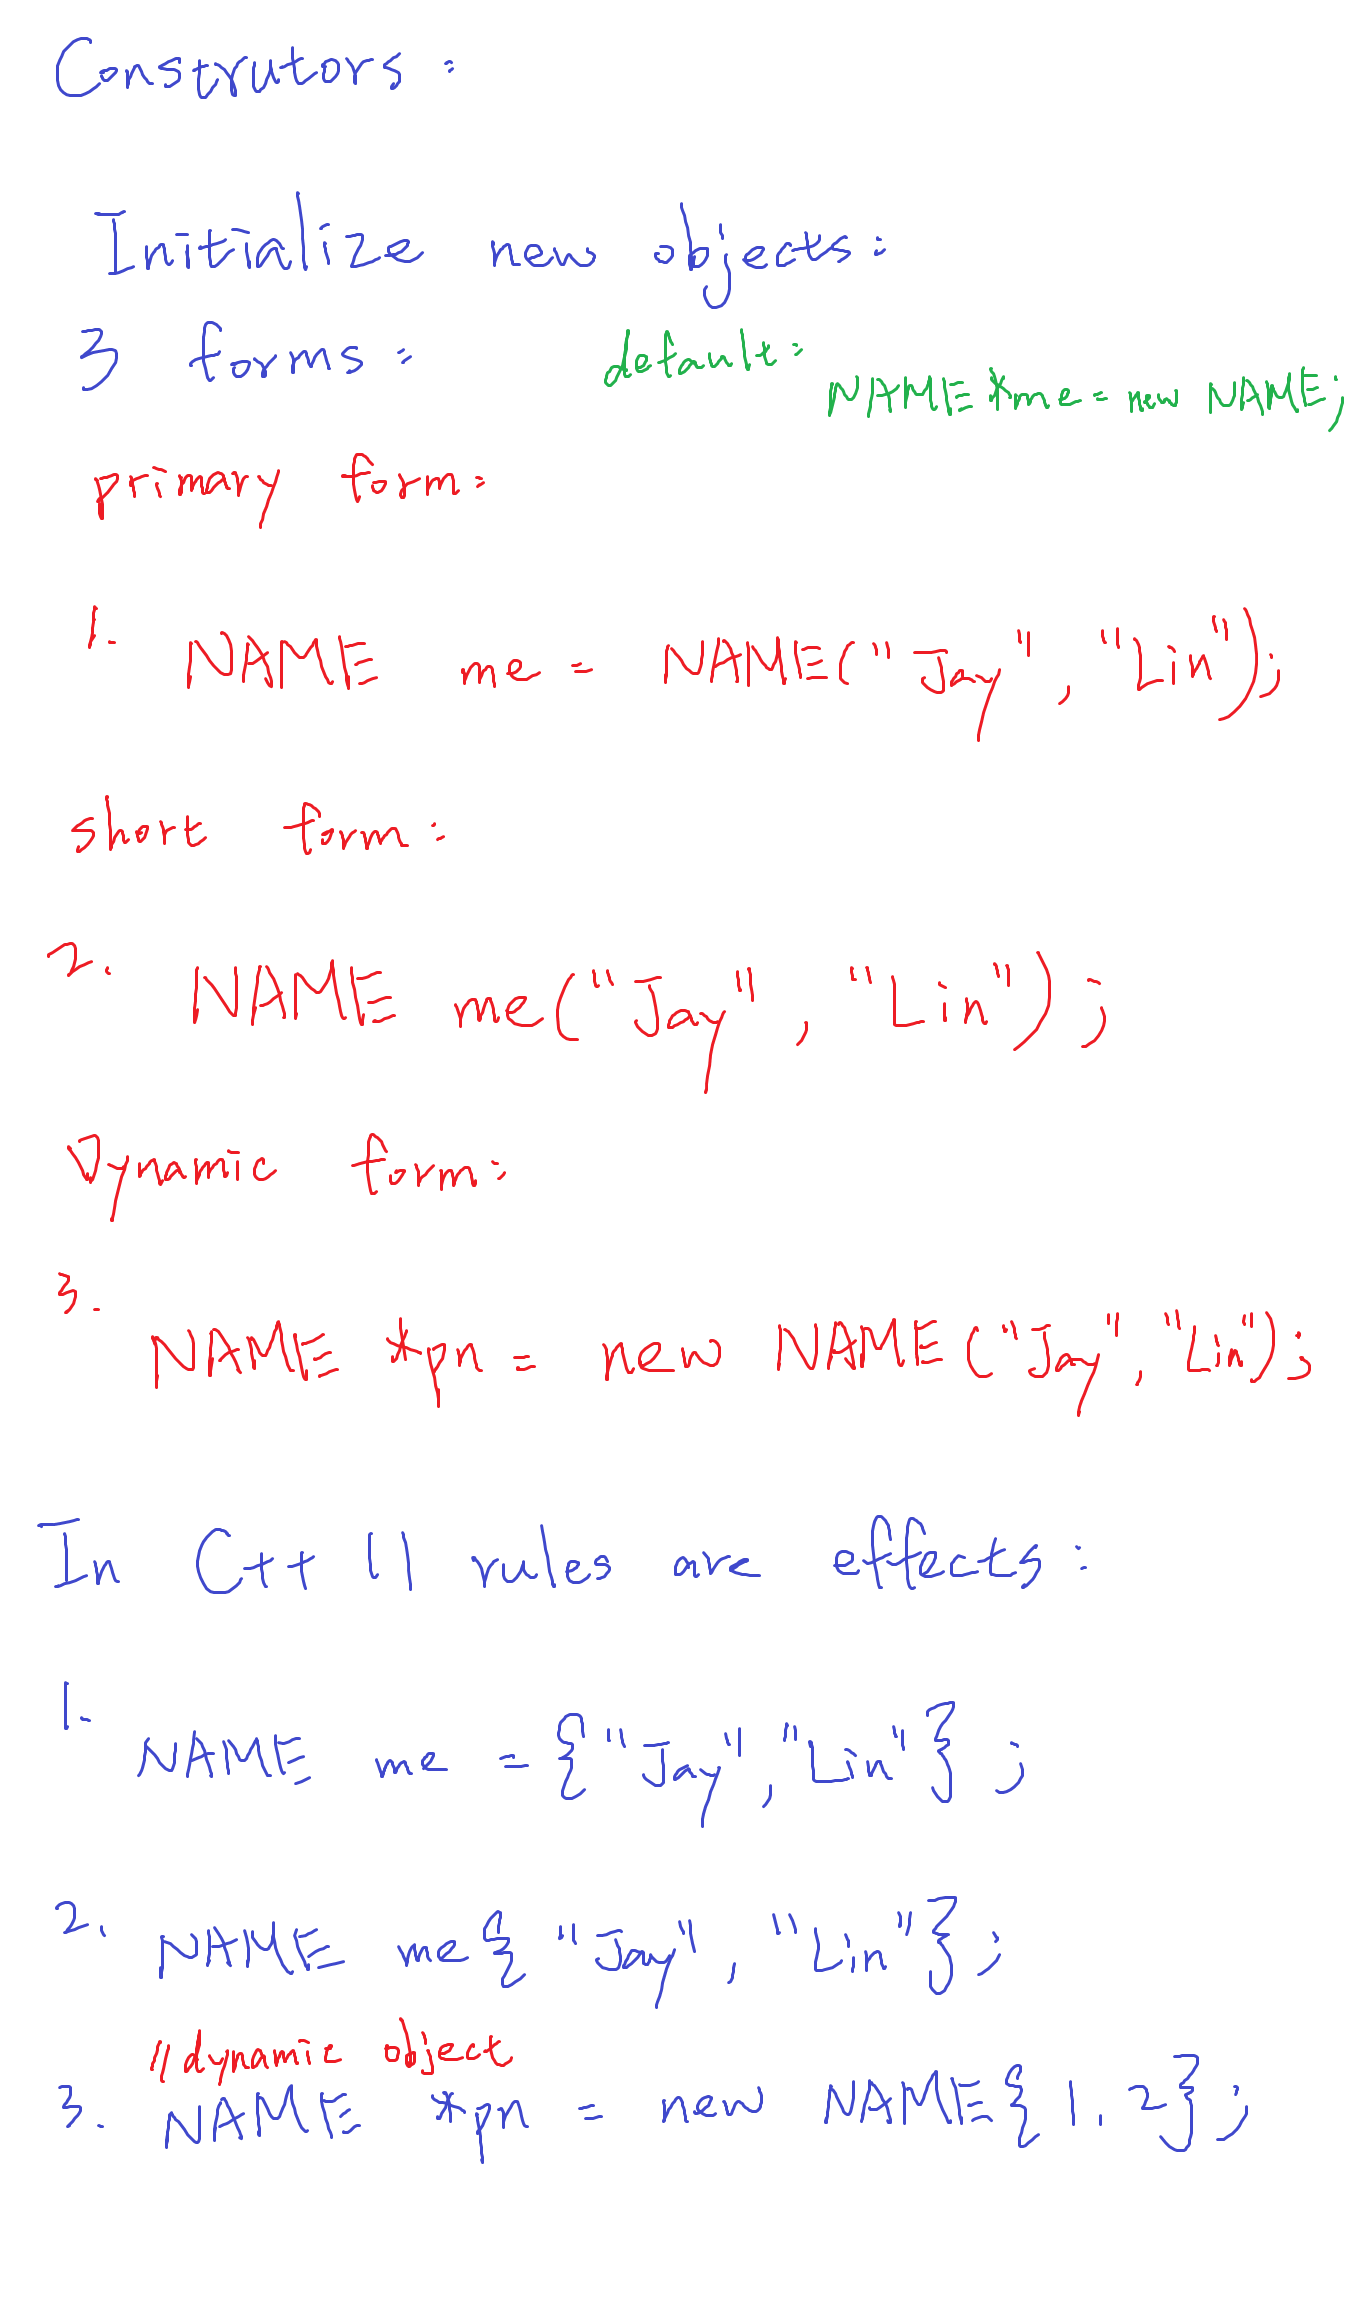 Construtors:
Initialize new objects:
3 forms:
default:
NAME *me = new NAME;
primary form:
1. NAME me = NAME("Jay", "Lin");
short form:
2. NAME me("Jay", "Lin");
Dynamic form:
3. NAME *pn = new NAME("Jay", "Lin");
In C++ 11 rules are effects:
1. NAME me = {"Jay","Lin"};
2. NAME me{ "Jay", "Lin"};
//dynamic object
3. NAME *pn = new NAME{1, 2};